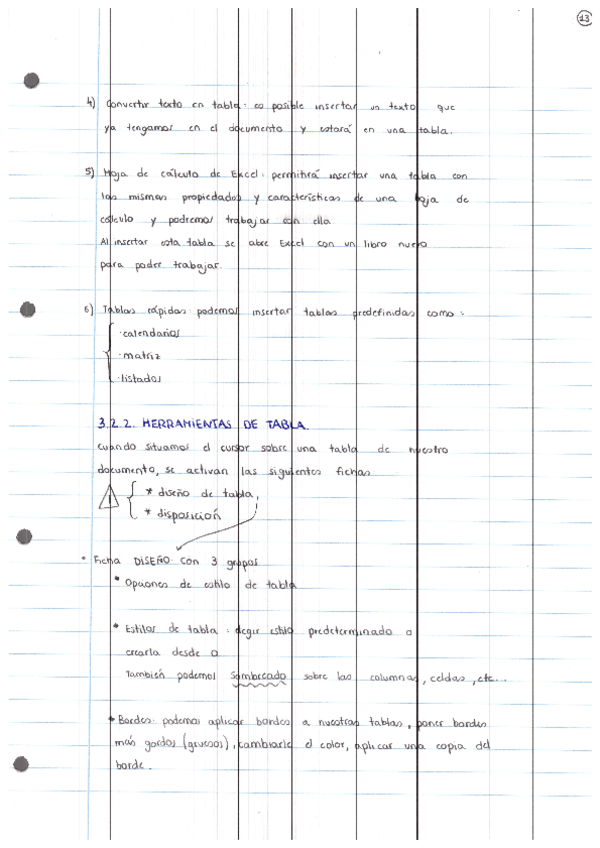 13
4) Convertir texto en tabla: es posible insertar un texto que
ya tengamos en el documento y estará en una tabla.
5) Hoja de cálculo de Excel: permitirá insertar una tabla con
las mismas propiedades y características de una hoja de
cálculo y podremos trabajar con ella
Al insertar esta tabla se abre Excel con un libro nuevo
para poder trabajar.
6) Tablas rápidas: podemos insertar tablas predefinidas como:
· calendarios
· matriz
· listados
3.2.2. HERRAMIENTAS DE TABLA.
cuando situamos el cursor sobre una tabla de nuestro
documento, se activan las siguientes fichas
* diseño de tabla,
* disposición
· Ficha DISEÑO con 3 grupos
* Opciones de estilo de tabla
* Estilos de tabla: elegir estilo predeterminado o
crearla desde 0
También podemos Sombreado sobre las columnas, celdas, etc...
* Bordes: podemos aplicar bordes a nuestras tablas, poner bordes
más gordos (gruesos), cambiarle el color, aplicar una copia del
borde.